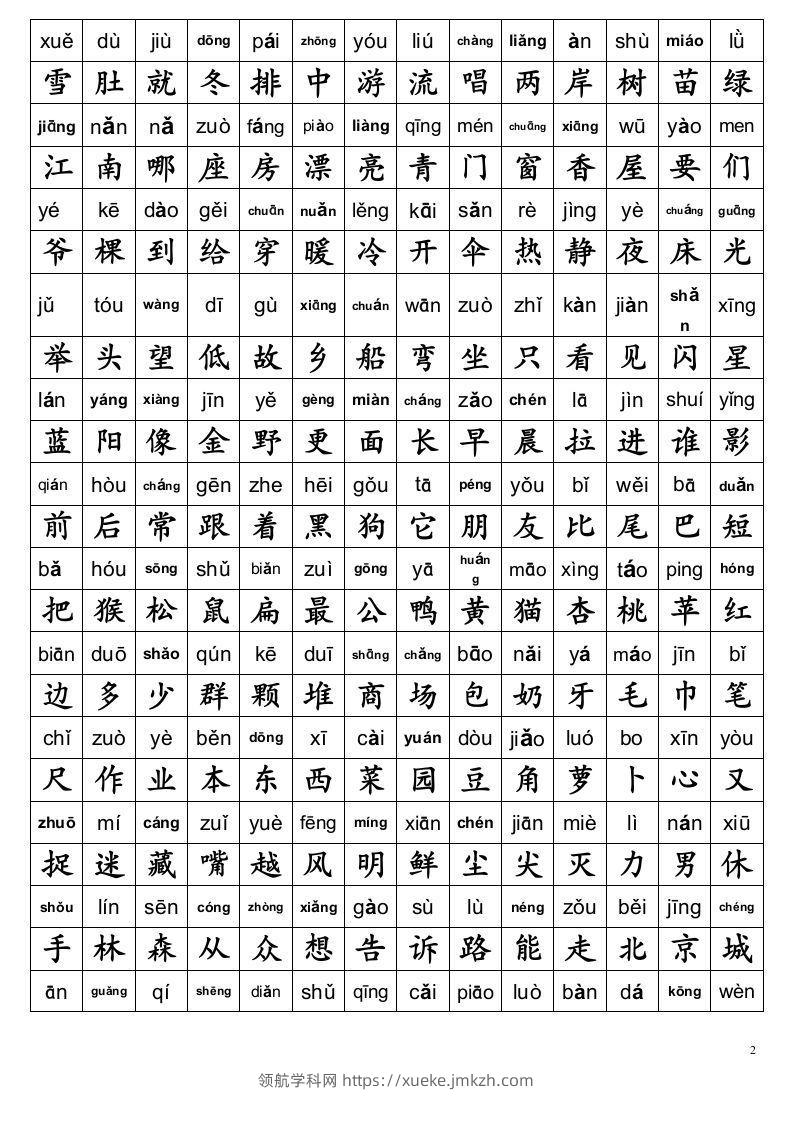 xuě dù jiù dōng pái zhōng yóu liú chàng liǎng àn shù miáo lǜ
雪 肚 就 冬 排 中 游 流 唱 两 岸 树 苗 绿
jiāng nǎn nǎ zuò fáng piào liàng qīng mén chuāng xiāng wū yào men
江 南 哪 座 房 漂 亮 青 门 窗 香 屋 要 们
yé kē dào gěi chuān nuǎn lěng kāi sǎn rè jìng yè chuáng guāng
爷 棵 到 给 穿 暖 冷 开 伞 热 静 夜 床 光
jǔ tóu wàng dī gù xiāng chuán wān zuò zhǐ kàn jiàn shǎn xīng
举 头 望 低 故 乡 船 弯 坐 只 看 见 闪 星
lán yáng xiàng jīn yě gèng miàn cháng zǎo chén lā jìn shuí yǐng
蓝 阳 像 金 野 更 面 长 早 晨 拉 进 谁 影
qián hòu cháng gēn zhe hēi gǒu tā péng yǒu bǐ wěi bā duǎn
前 后 常 跟 着 黑 狗 它 朋 友 比 尾 巴 短
bǎ hóu sōng shǔ biǎn zuì gōng yā huáng māo xìng táo ping hóng
把 猴 松 鼠 扁 最 公 鸭 黄 猫 杏 桃 苹 红
biān duō shǎo qún kē duī shāng chǎng bāo nǎi yá máo jīn bǐ
边 多 少 群 颗 堆 商 场 包 奶 牙 毛 巾 笔
chǐ zuò yè běn dōng xī cài yuán dòu jiǎo luó bo xīn yòu
尺 作 业 本 东 西 菜 园 豆 角 萝 卜 心 又
zhuō mí cáng zuǐ yuè fēng míng xiān chén jiān miè lì nán xiū
捉 迷 藏 嘴 越 风 明 鲜 尘 尖 灭 力 男 休
shǒu lín sēn cóng zhòng xiǎng gào sù lù néng zǒu běi jīng chéng
手 林 森 从 众 想 告 诉 路 能 走 北 京 城
ān guǎng qí shēng diǎn shǔ qīng cǎi piāo luò bàn dá kōng wèn
2
领航学科网 https://xueke.jmkzh.com